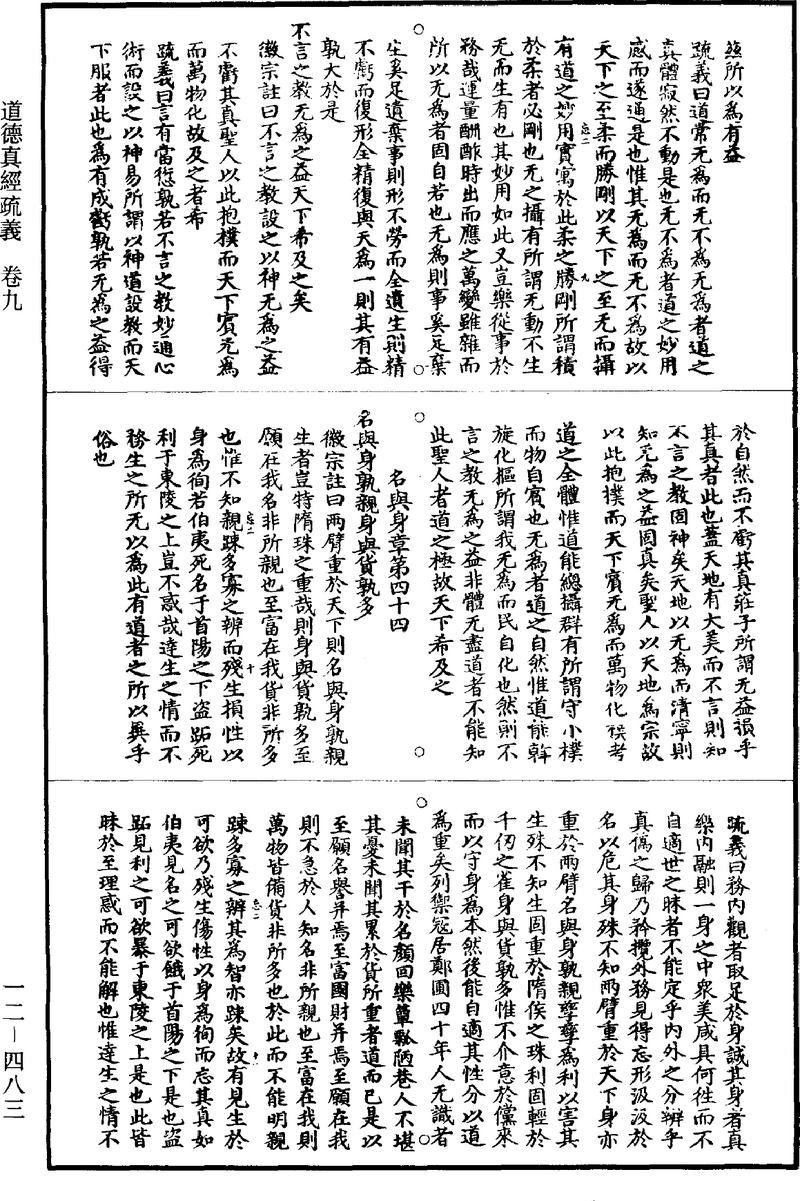 道德真經疏義　卷九
一二－四八三
益所以為有益
疏義曰道常无為而无不為无為者道之
真體寂然不動是也无不為者道之妙用
感而遂通是也惟其无為而无不為故以
天下之至柔而勝剛以天下之至无而攝
有道之妙用實寓於此柔之勝剛所謂積
於柔者必剛也无之攝有所謂无動不生
无而生有也其妙用如此又豈樂從事於
務哉運量酬酢時出而應之萬變雖雜而
所以无為者固自若也无為則事奚足棄
生奚足遺棄事則形不勞而全遺生則精
不虧而復形全精復與天為一則其有益
孰大於是
不言之教无為之益天下希及之矣
徽宗註曰不言之教設之以神无為之益
不虧其真聖人以此抱樸而天下賓无為
而萬物化故及之者希
疏義曰言有當愆孰若不言之教妙通心
術而設之以神易所謂以神道設教而天
下服者此也為有成虧孰若无為之益得
於自然而不虧其真莊子所謂无益損乎
其真者此也蓋天地有大美而不言則知
不言之教固神矣天地以无為而清寧則
知无為之益固真矣聖人以天地為宗故
以此抱樸而天下賓无為而萬物化矣考
道之全體惟道能總攝群有所謂守小樸
而物自賓也无為者道之自然惟道能斡
旋化樞所謂我无為而民自化也然則不
言之教无為之益非體无盡道者不能知
此聖人者道之極故天下希及之
名與身章第四十四
名與身孰親身與貨孰多
徽宗註曰兩臂重於天下則名與身孰親
生者豈特隋珠之重哉則身與貨孰多至
願在我名非所親也至富在我貨非所多
也惟不知親踈多寡之辨而殘生損性以
身為徇若伯夷死名于首陽之下盜跖死
利于東陵之上豈不惑哉達生之情而不
務生之所无以為此有道者之所以異乎
俗也
疏義曰務內觀者取足於身誠其身者真
樂內融則一身之中眾美咸具何徃而不
自適世之昧者不能定乎內外之分辨乎
真偽之歸乃矜攬外務見得忘形汲汲於
名以危其身殊不知兩臂重於天下身亦
重於兩臂名與身孰親孳孳為利以害其
生殊不知生固重於隋侯之珠利固輕於
千仞之雀身與貨孰多惟不介意於儻來
而以守身為本然後能自適其性分以道
為重矣列禦寇居鄭圃四十年人无識者
未聞其干於名顏回樂簞瓢陋巷人不堪
其憂未聞其累於貨所重者道而已是以
至願名譽并焉至富國財并焉至願在我
則不急於人知名非所親也至富在我則
萬物皆備貨非所多也於此而不能明親
踈多寡之辨其為智亦踈矣故有見生於
可欲乃殘生傷性以身為徇而忘其真如
伯夷見名之可欲餓于首陽之下是也盜
跖見利之可欲暴于東陵之上是也此皆
昧於至理惑而不能解也惟達生之情不